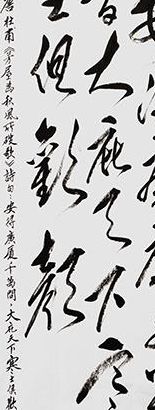 大庇天下寒
士俱歡顏
唐杜甫《茅屋為秋風所破歌》詩句：安得廣厦千萬間，大庇天下寒士俱歡